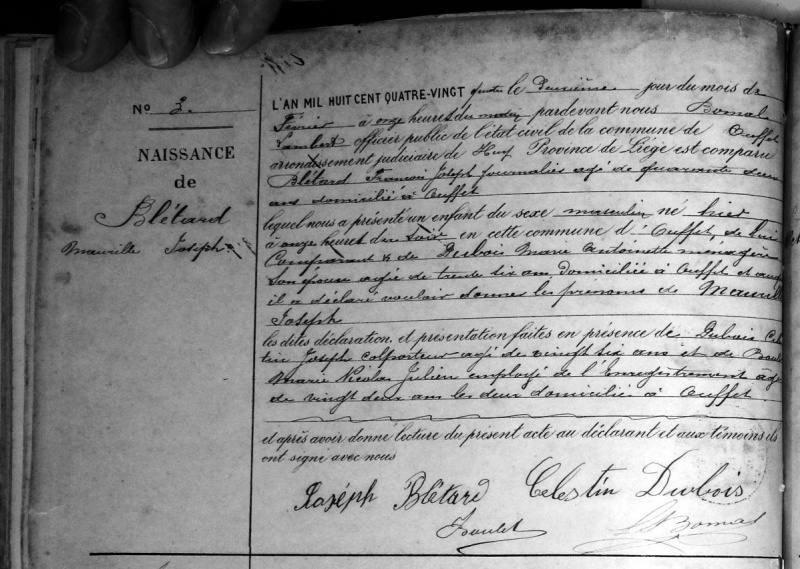 No 3.
NAISSANCE
de
Blétard
Mauville Joseph
L'AN MIL HUIT CENT QUATRE-VINGT quatre le Deuxième jour du mois de
Février à onze heures du matin pardevant nous Bomal
Lambert officier public de l'état civil de la commune de Ouffet
arrondissement judiciaire de Huy Province de Liége est comparu
Blétard François Joseph journalier agé de quarante deux
ans domicilié à Ouffet
lequel nous a présenté un enfant du sexe masculin né hier
à onze heures du soir en cette commune d'Ouffet, de lui
Comparant & de Dubois Marie Antoinette ménagère
son épouse agée de trente six ans domiciliée à Ouffet et auquel
il a déclaré vouloir donner les prénoms de
Joseph
les dites déclaration et présentation faites en présence de Dubois Céles
tin Joseph colporteur agé de vingt six ans et de
Marie Nicolas Julien employé de l'Enregistrement âgé
de vingt deux ans les deux domiciliés à Ouffet
et après avoir donné lecture du présent acte au déclarant et aux témoins ils
ont signé avec nous
Joséph Blétard Celestin Dubois
Bomal